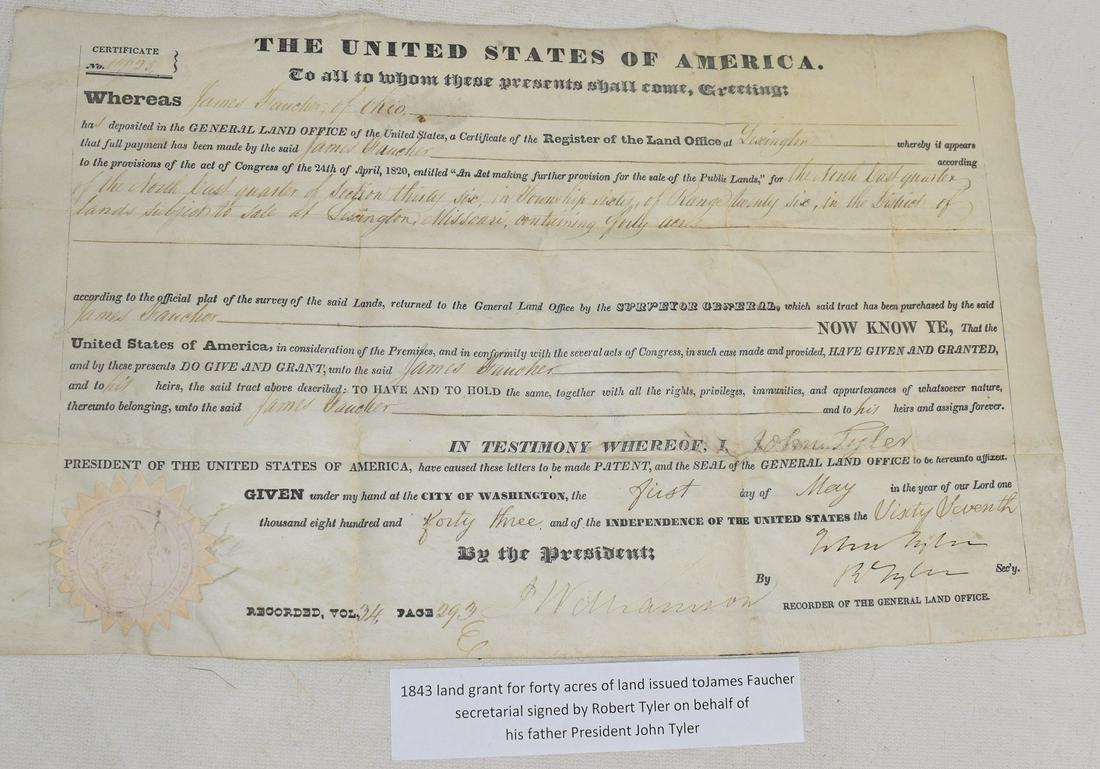 THE UNITED STATES OF AMERICA.
CERTIFICATE
No.
To all to whom these presents shall come, Greeting:
Whereas James Faucher, of Ohio,
has deposited in the GENERAL LAND OFFICE of the United States, a Certificate of the Register of the Land Office at Lexington whereby it appears
that full payment has been made by the said James Faucher according
to the provisions of the act of Congress of the 24th of April, 1820, entitled "An Act making further provision for the sale of the Public Lands," for the North East quarter
of the North East quarter of Section thirty six, in Township sixty, of Range twenty six, in the District of
lands subject to sale at Lexington, Missouri, containing forty acres
according to the official plat of the survey of the said Lands, returned to the General Land Office by the SURVEYOR GENERAL, which said tract has been purchased by the said
James Faucher NOW KNOW YE, That the
United States of America, in consideration of the Premises, and in conformity with the several acts of Congress, in such case made and provided, HAVE GIVEN AND GRANTED,
and by these presents DO GIVE AND GRANT, unto the said James Faucher
and to his heirs, the said tract above described: TO HAVE AND TO HOLD the same, together with all the rights, privileges, immunities, and appurtenances of whatsoever nature,
thereunto belonging, unto the said James Faucher and to his heirs and assigns forever.
IN TESTIMONY WHEREOF, I, John Tyler
PRESIDENT OF THE UNITED STATES OF AMERICA, have caused these letters to be made PATENT, and the SEAL of the GENERAL LAND OFFICE to be hereunto affixed.
GIVEN under my hand at the CITY OF WASHINGTON, the first day of May in the year of our Lord one
thousand eight hundred and forty three and of the INDEPENDENCE OF THE UNITED STATES the Sixty Seventh
By the President: John Tyler
By R Tyler Sec'y.
J Williamson RECORDER OF THE GENERAL LAND OFFICE.
RECORDED, VOL. 34, PAGE 293
E
1843 land grant for forty acres of land issued toJames Faucher
secretarial signed by Robert Tyler on behalf of
his father President John Tyler